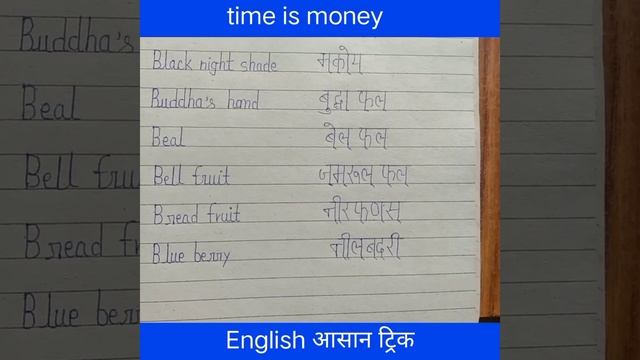 time is money
Black night shade मकोय
Buddha's hand बुद्धा फल
Beal बेल फल
Bell fruit जमरूल फल
Bread fruit नीरफणस
Blue berry नीलबदरी
English आसान ट्रिक
Buddha's
Beal
Bell fru
Bread f
Blue ber